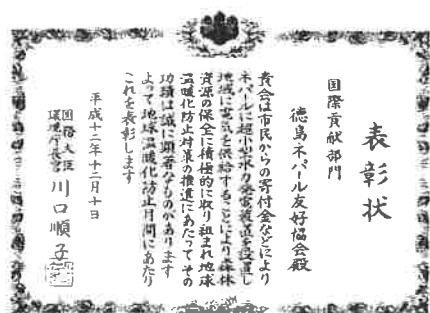 表彰状
国際貢献部門
徳島ネパール友好協会殿
貴会は市民からの寄付金などにより
ネパールに超小型水力発電装置を設置し
地域に電気を供給することにより森林
資源の保全に積極的に取り組まれ地球
温暖化防止対策の推進にあたってその
功績は誠に顕著なものがあります
よって地球温暖化防止月間にあたり
これを表彰します
平成十二年十二月十日
国務大臣
環境庁長官 川口順子